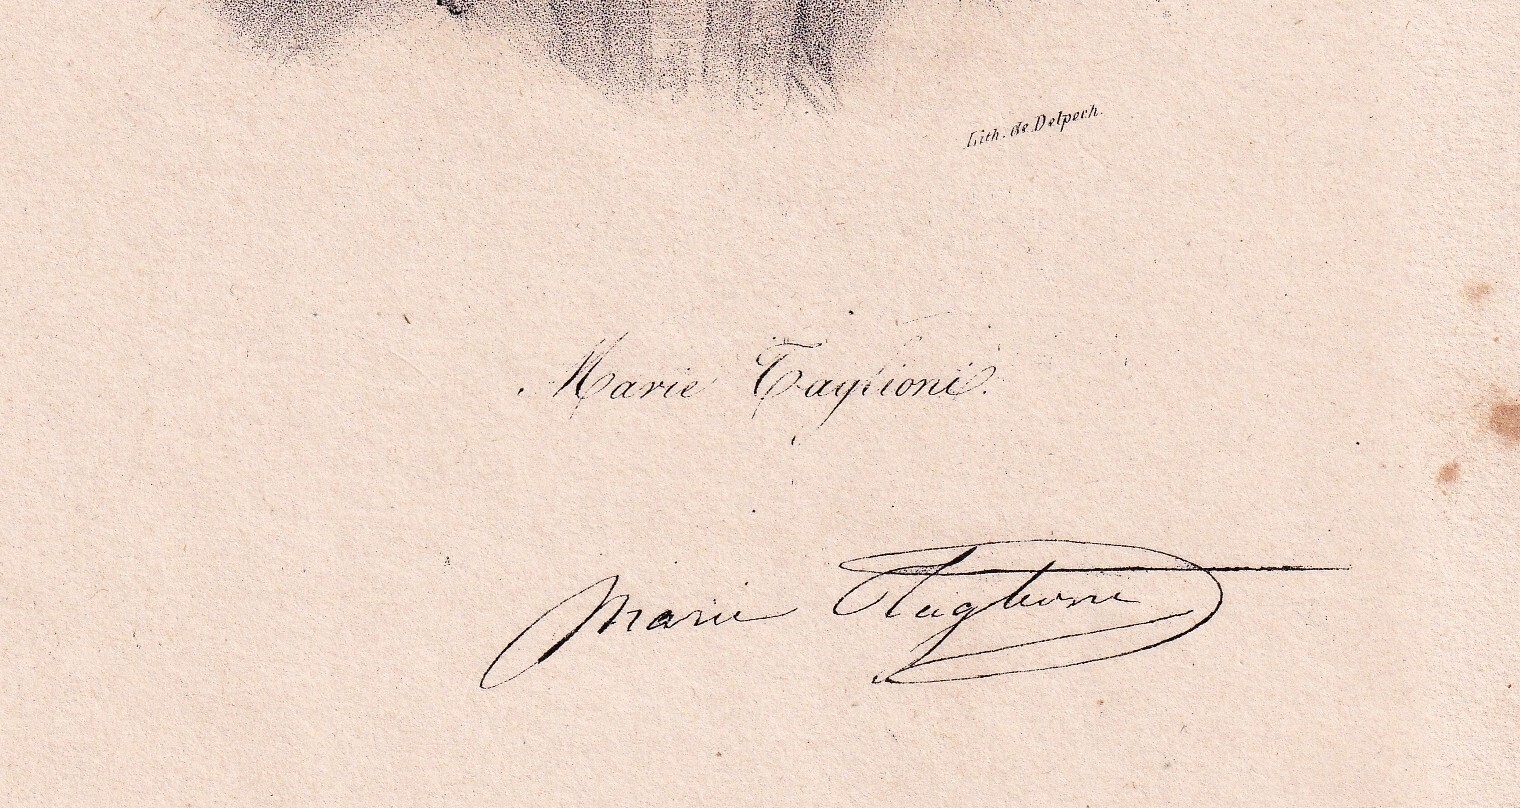 Lith. de Delpech.
Marie Taglioni.
Marie Taglioni